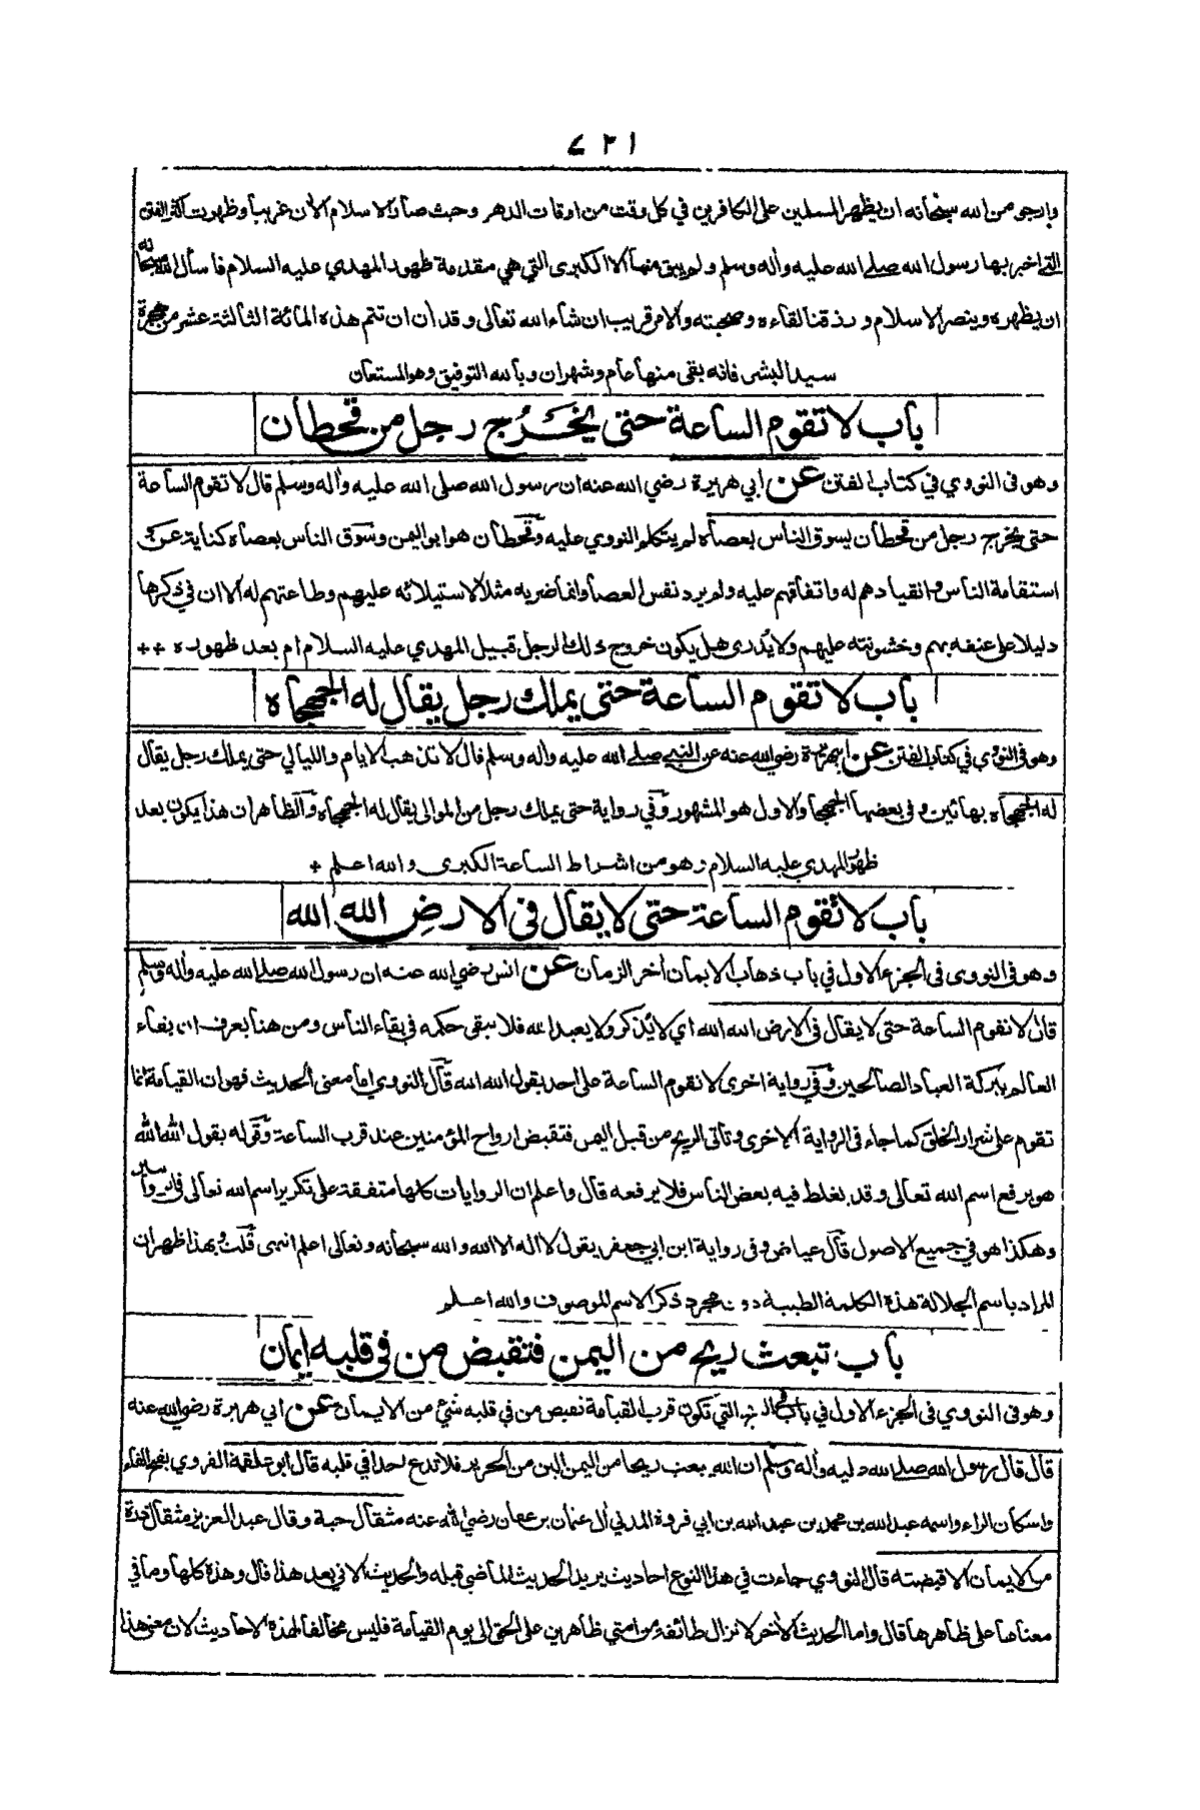 ٧٣١
وارجو من الله سبحانه ان يظهر المسلمين على الكافرين في كل وقت من اوقات الدهر وحيث صار الاسلام الأن غريبا وظهرت اكثر الفتن
التي اخبر بها رسول الله صلى الله عليه وأله وسلم ولم يبق منها ألا الكبرى التي هي مقدمة ظهور المهدي عليه السلام فأسأل الله سبحانه
ان يظهره وينصر الاسلام ورزقنا لقاءه وصحبته والامر قريب ان شاء الله تعالى وقد أن ان تتم هذه المائة الثالثة عشر من هجرة
سيد البشر فانه بقى منها عام وشهران وبالله التوفيق وهو المستعان
باب لا تقوم الساعة حتى يخرج رجل من قحطان
وهو في النووي في كتاب الفتن عن ابي هريرة رضي الله عنه ان رسول الله صلى الله عليه وأله وسلم قال لا تقوم الساعة
حتى يخرج رجل من قحطان يسوق الناس بعصاه لم يتكلم النووي عليه وقحطان هو ابو اليمن وسوق الناس بعصاه كناية عن
استقامة الناس وانقيادهم له واتفاقهم عليه ولم يرد نفس العصا وانما ضربه مثلا لاستيلائه عليهم وطاعتهم له ألا ان في ذكرها
دليلا على عنفه بهم وخشونته عليهم ولا يدرى هل يكون خروج ذلك الرجل قبيل المهدي عليه السلام ام بعد ظهوره ++
باب لا تقوم الساعة حتى يملك رجل يقال له الجهجاه
وهو في النووي في كتاب الفتن عن ابي هريرة رضي الله عنه عن النبي صلى الله عليه وأله وسلم قال لا تذهب الايام والليالي حتى يملك رجل يقال
له الجهجاه بهائين وفي بعضها الجهجا والاول هو المشهور وفي رواية حتى يملك رجل من الموالي يقال له الجهجاه والظاهر ان هذا يكون بعد
ظهور المهدي عليه السلام وهو من اشراط الساعة الكبرى والله اعلم +
باب لا تقوم الساعة حتى لا يقال في الارض الله الله
وهو في النووى في الجزء الاول في باب ذهاب الايمان أخر الزمان عن انس رضي الله عنه ان رسول الله صلى الله عليه وأله وسلم
قال لا تقوم الساعة حتى لا يقال في الارض الله الله اي لا يذكر ولا يعبد الله فلا يبقى حكمه في بقاء الناس ومن هنا يعرف ان بقاء
العالم ببركة العباد الصالحين وفي رواية اخرى لا تقوم الساعة على احد يقول الله الله قال النووي اما معنى الحديث فهو ان القيامة انما
تقوم على شرار الخلق كما جاء في الرواية الاخرى وتأتي الريح من قبل اليمن فتقبض ارواح المؤمنين عند قرب الساعة وقوله يقول الله الله
هو برفع اسم الله تعالى وقد يغلط فيه بعض الناس فلا يرفعه قال واعلم ان الروايات كلها متفقة على تكرير اسم الله تعالى في
وهكذا هو في جميع الاصول قال عياض وفي رواية ابن ابي جعفر يقول لا اله الا الله والله سبحانه وتعالى اعلم انتهى قلت وبهذا ظهر ان
المراد باسم الجلالة هذه الكلمة الطيبة دون مجرد ذكر الاسم الموصوف والله اعلم
باب تبعث ريح من اليمن فتقبض من في قلبه إيمان
وهو في النووي في الجزء الاول في باب في الريح التي تكون قرب القيامة تقبض من في قلبه شيء من الايمان عن ابي هريرة رضي الله عنه
قال قال رسول الله صلى الله عليه وأله وسلم ان الله يبعث ريحا من اليمن الين من الحرير فلا تدع احدا في قلبه قال ابو علقمة الفروي بفتح الفاء
واسكان الراء واسمه عبد الله بن محمد بن عبد الله بن ابي فروة المدني أل عثمان بن عفان رضي الله عنه مثقال حبة وقال عبد العزيز مثقال ذرة
من الايمان الا قبضته قال النووي جاءت في هذا النوع احاديث يريد الحديث الماضي قبله والحديث الاتي بعد هذا قال وهذه كلها وما في
معناها على ظاهرها قال واما الحديث الأخر لا تزال طائفة من امتي ظاهرين على الحق الى يوم القيامة فليس مخالفا لهذه الاحاديث لان معنى هذا